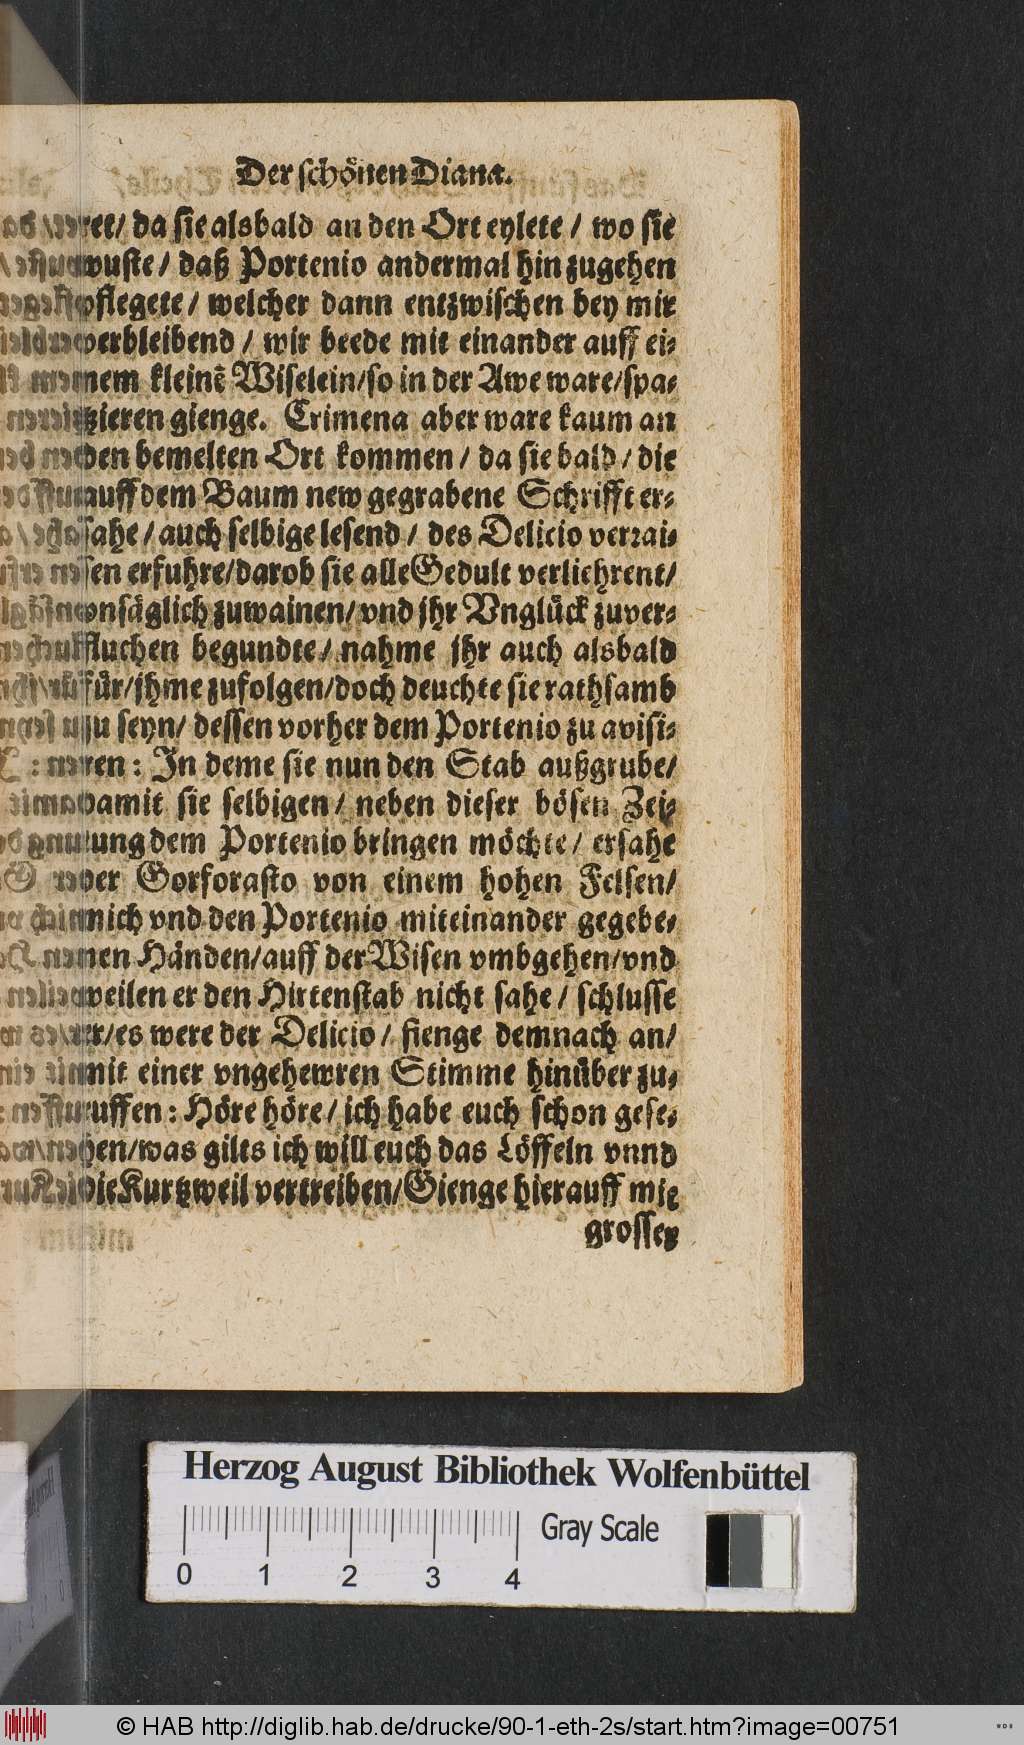 Der schönen Diana.
ret/ da sie alsbald an den Ort eylete / wo sie
wuste/ daß Portenio andermal hin zugehen
pflegete/ welcher dann entzwischen bey mir
verbleibend / wir beede mit einander auff ei-
nem kleinē Wiselein/so in der Awe ware/spa-
zieren gienge. Crimena aber ware kaum an
den bemelten Ort kommen / da sie bald / die
auff dem Baum new gegrabene Schrifft er-
sahe / auch selbige lesend / des Delicio verrai-
sen erfuhre/darob sie alle Gedult verliehrent/
vnsäglich zuwainen/ vnd jhr Vnglück zuver-
fluchen begundte/ nahme jhr auch alsbald
für/jhme zufolgen/doch deuchte sie rathsamb
zu seyn/ dessen vorher dem Portenio zu avisi-
ren: In deme sie nun den Stab außgrube/
damit sie selbigen/ neben dieser bösen Zei-
tung dem Portenio bringen möchte/ ersahe
der Gorforasto von einem hohen Felsen/
mich vnd den Portenio miteinander gegebe-
nen Händen/auff der Wisen vmbgehen/vnd
weilen er den Hirtenstab nicht sahe / schlusse
er/es were der Delicio / fienge demnach an/
mit einer vngehewren Stimme hinüber zu-
ruffen: Höre höre/ ich habe euch schon gese-
hen/was gilts ich will euch das Löffeln vnnd
die Kurtzweil vertreiben/Gienge hierauff mit
grosser
Herzog August Bibliothek Wolfenbüttel
Gray Scale
0 1 2 3 4
© HAB http://diglib.hab.de/drucke/90-1-eth-2s/start.htm?image=00751